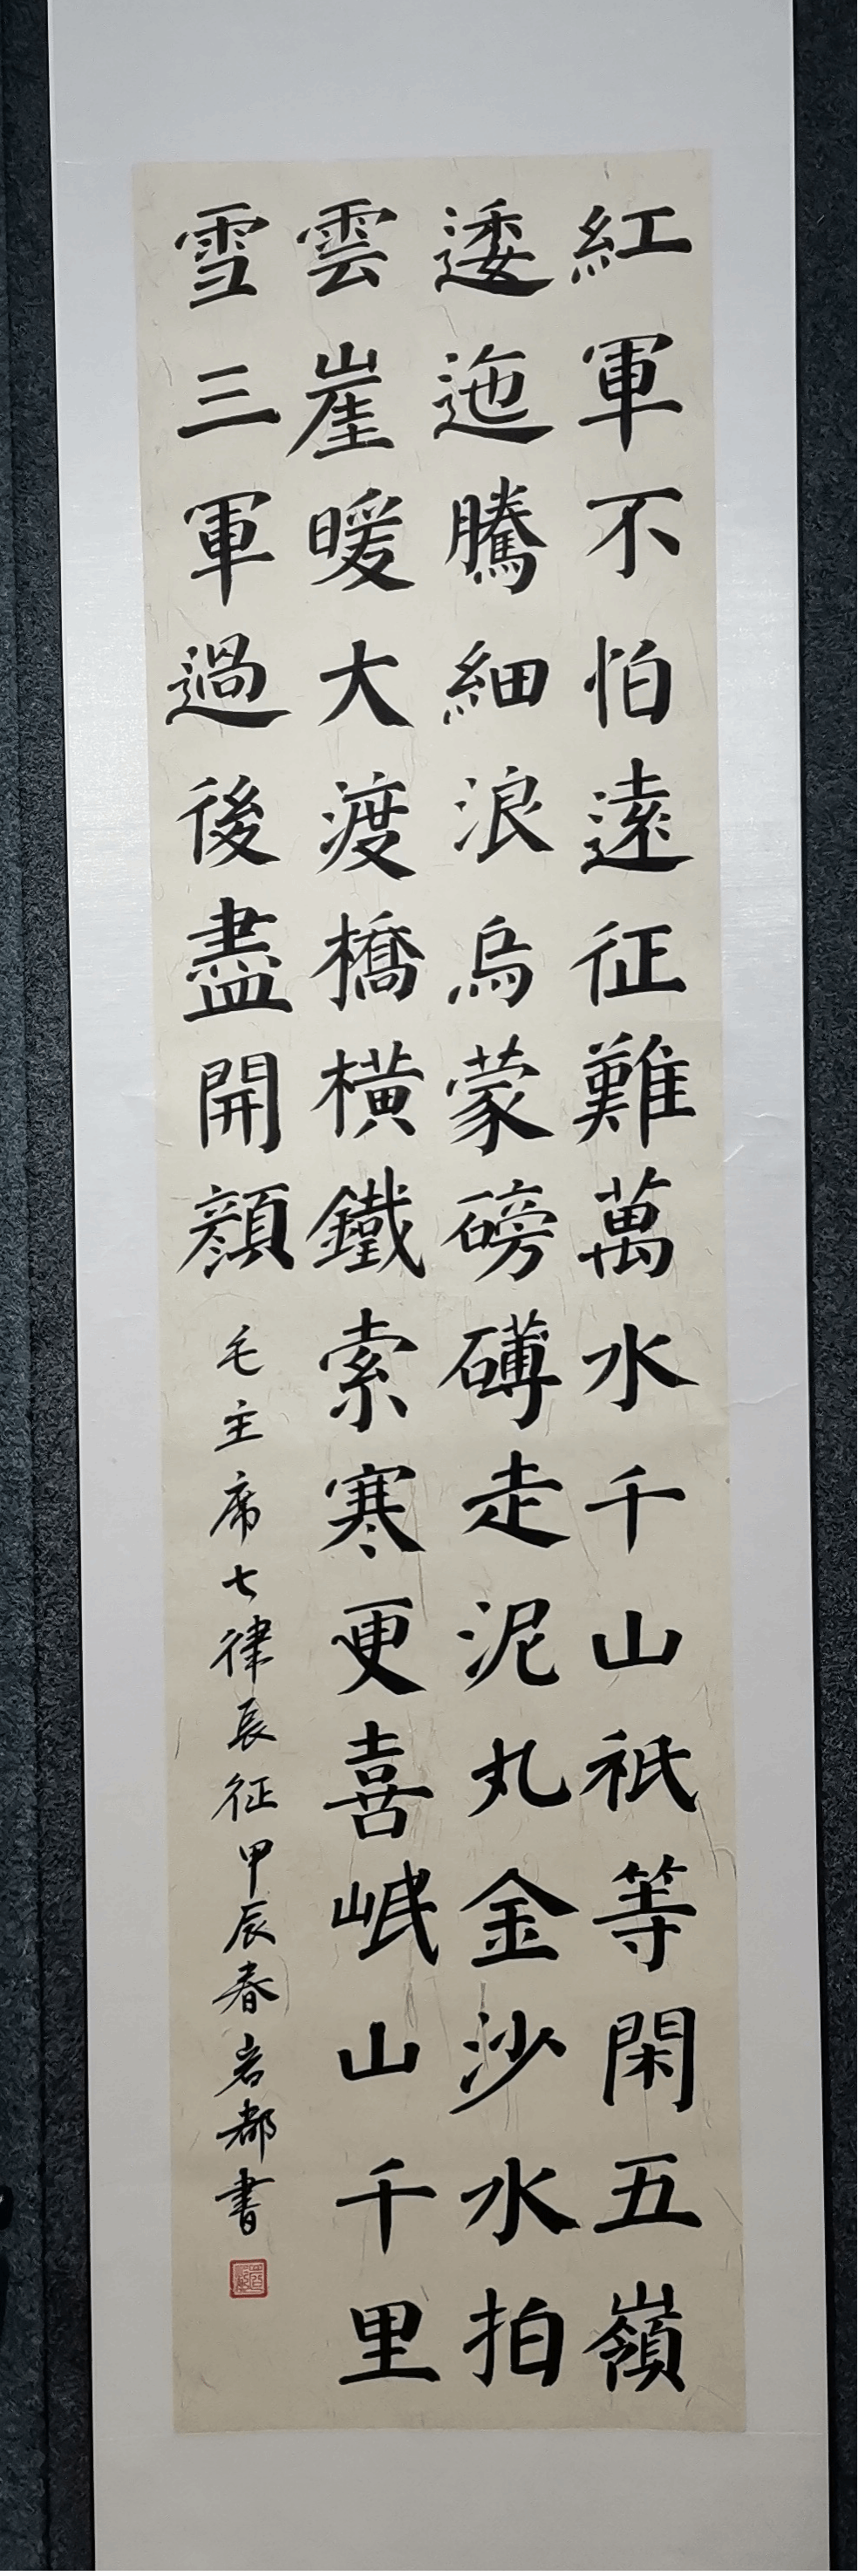 紅軍不怕遠征難萬水千山祇等閑五嶺
逶迤騰細浪烏蒙磅礴走泥丸金沙水拍
雲崖暖大渡橋横鐵索寒更喜岷山千里
雪三軍過後盡開顔
毛主席七律長征甲辰春岩都書